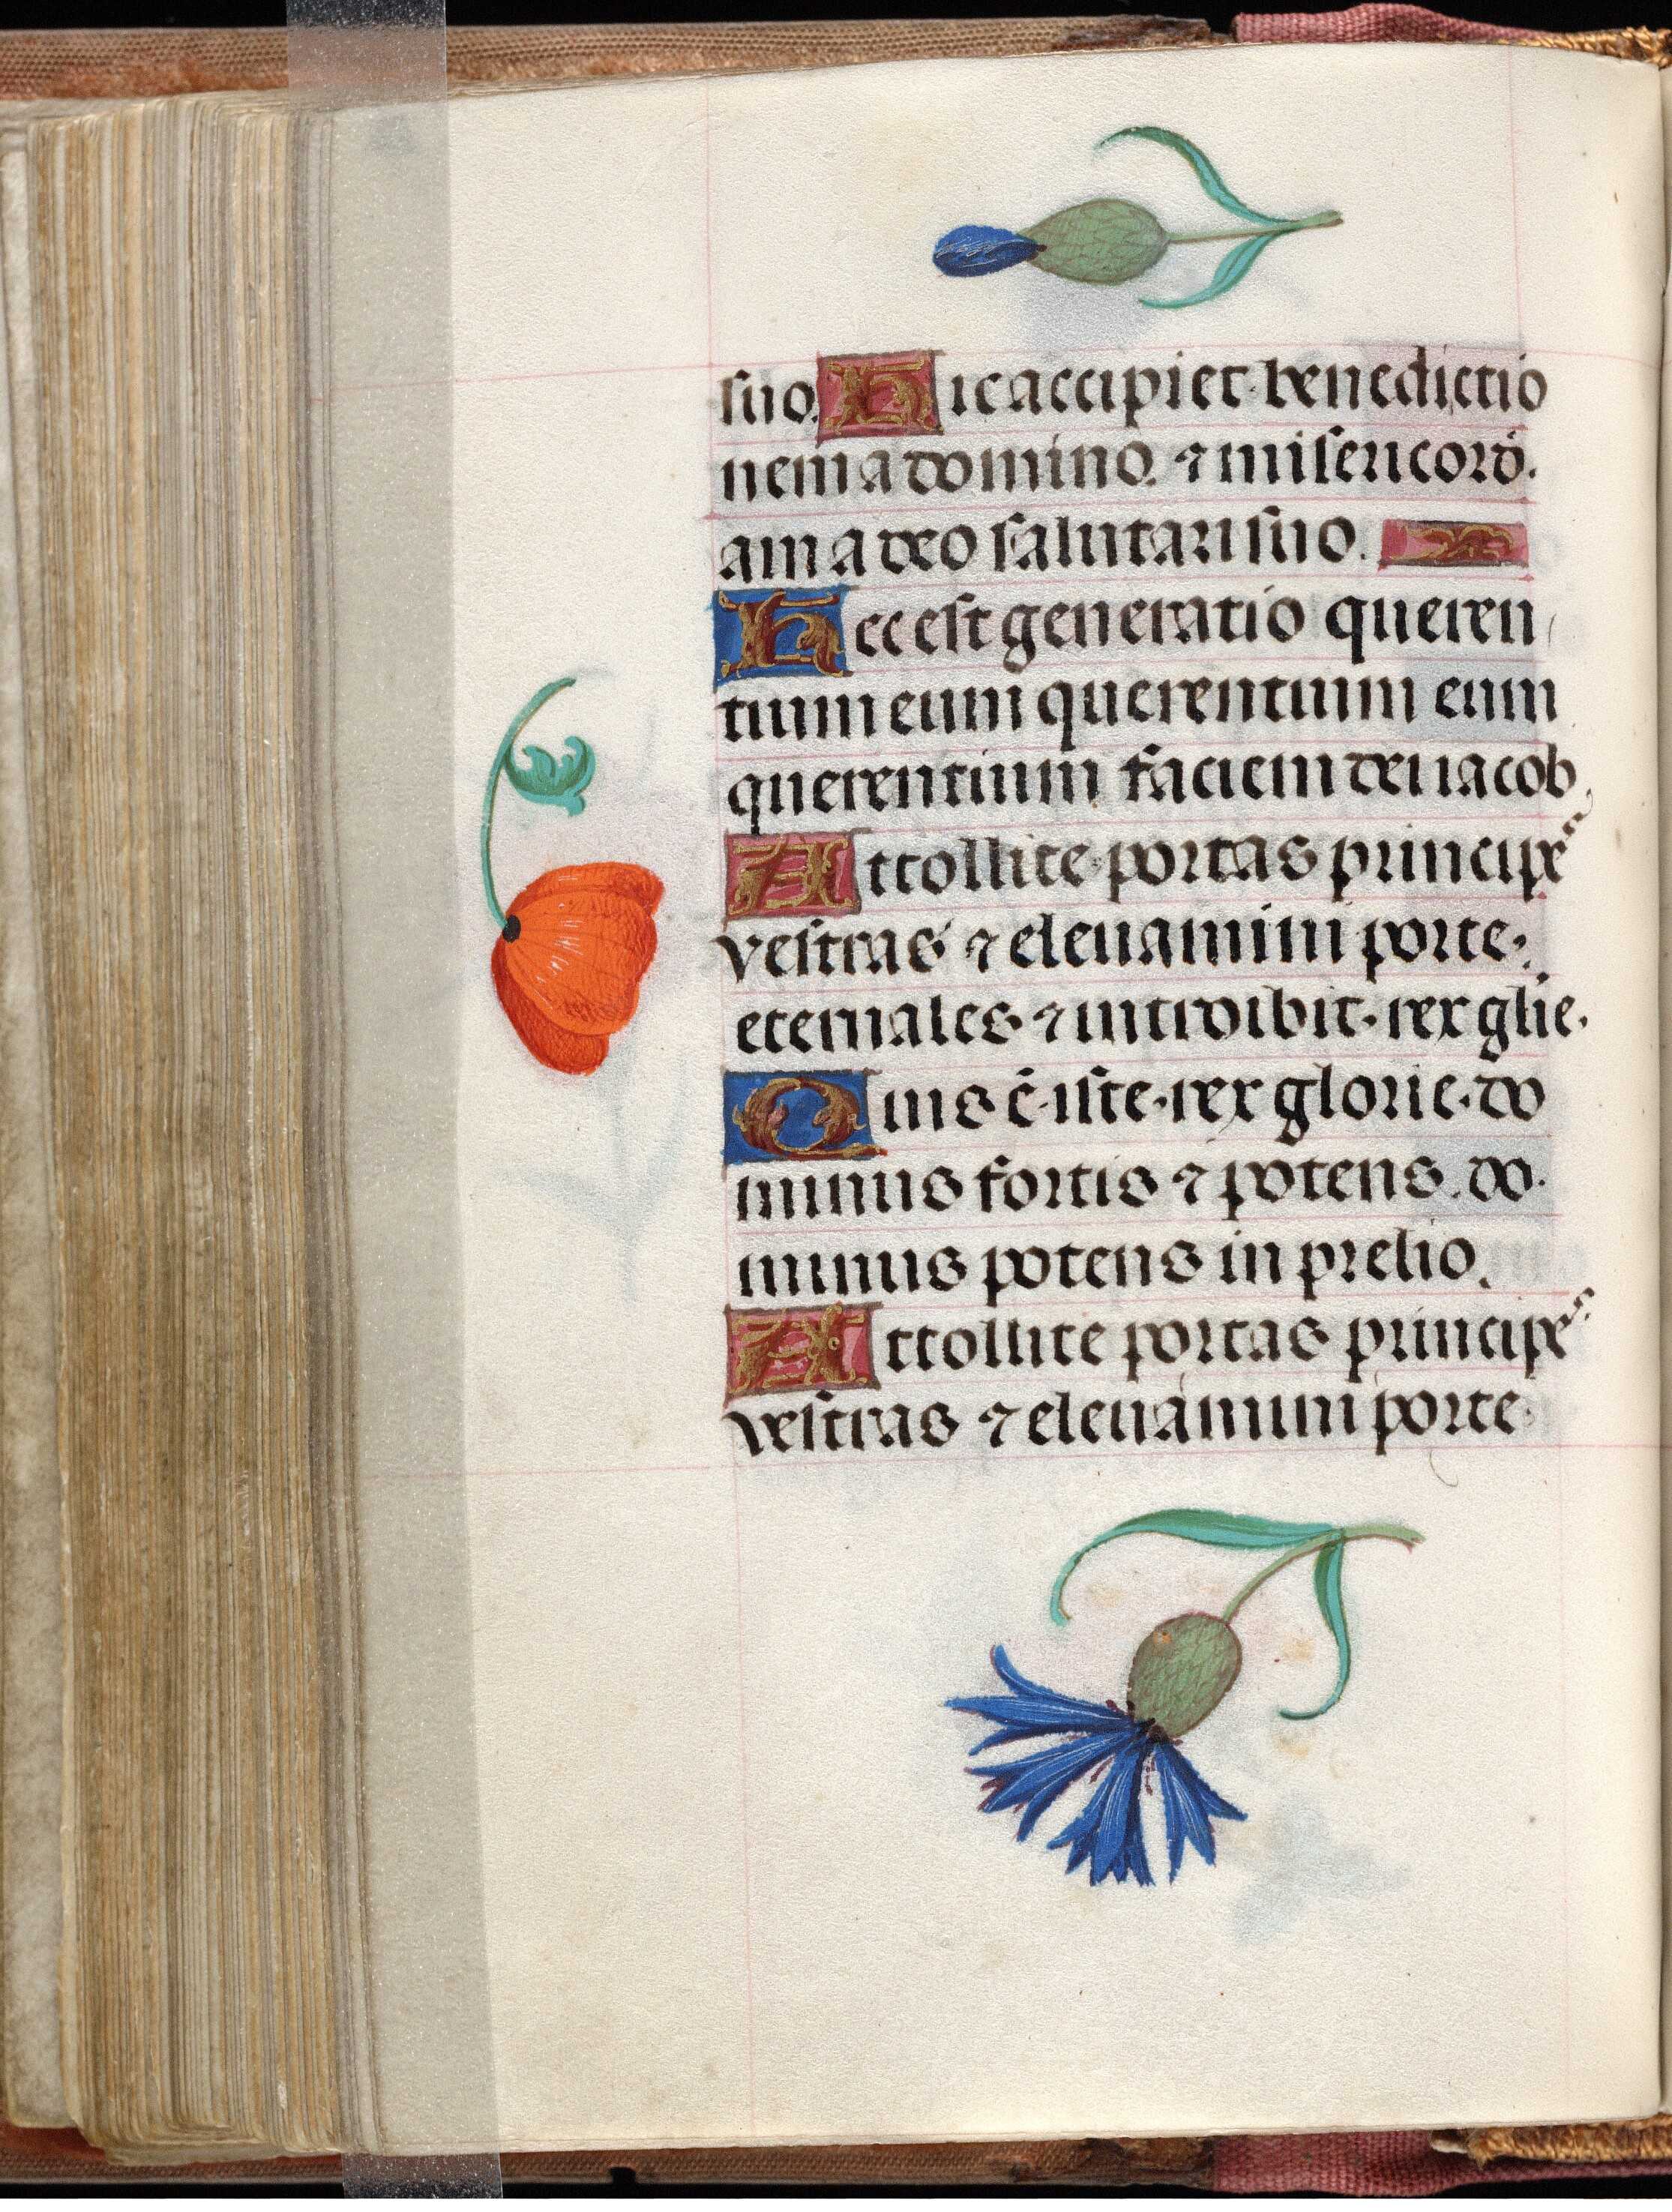 suo. Hic accipiet benedictio
nem a domino. ⁊ misericord̄.
am a deo salutari suo.
Hec est generatio queren
tium eum querentium eum
querentium faciem dei iacob.
Attollite portas principes
vestras ⁊ eleuamini porte.
eternales ⁊ introibit rex glie.
Quis ē iste rex glorie. do
minus fortis ⁊ potens. do.
minus potens in prelio.
Attollite portas principes
vestras ⁊ eleuamini porte